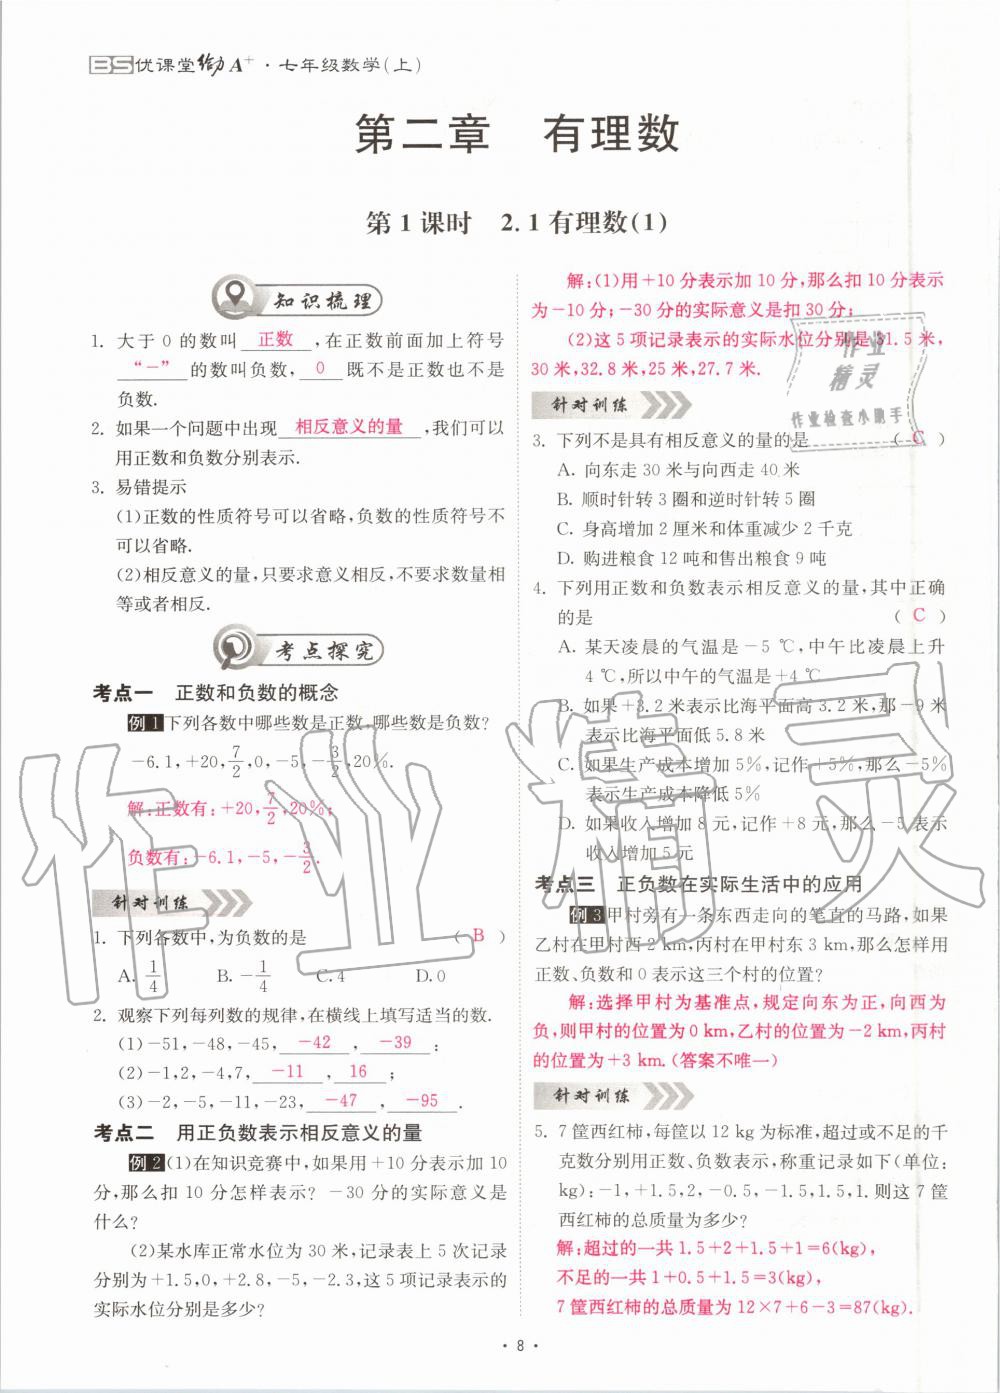 BS优课堂给力A⁺·七年级数学(上)
第二章 有理数
第1课时 2.1有理数(1)
知识梳理
1. 大于0的数叫 正数 ,在正数前面加上符号
“-” 的数叫负数, 0 既不是正数也不是
负数.
2. 如果一个问题中出现 相反意义的量 ,我们可以
用正数和负数分别表示.
3. 易错提示
(1)正数的性质符号可以省略,负数的性质符号不
可以省略.
(2)相反意义的量,只要求意义相反,不要求数量相
等或者相反.
考点探究
考点一 正数和负数的概念
例1 下列各数中哪些数是正数,哪些数是负数?
-6.1,+20,7/2,0,-5,-3/2,20%.
解:正数有:+20,7/2,20%;
负数有:-6.1,-5,-3/2.
针对训练
1. 下列各数中,为负数的是 ( B )
A. 1/4 B. -1/4 C. 4 D. 0
2. 观察下列每列数的规律,在横线上填写适当的数.
(1)-51,-48,-45, -42 , -39 ;
(2)-1,2,-4,7, -11 , 16 ;
(3)-2,-5,-11,-23, -47 , -95 .
考点二 用正负数表示相反意义的量
例2 (1)在知识竞赛中,如果用+10分表示加10
分,那么扣10分怎样表示? -30分的实际意义是
什么?
(2)某水库正常水位为30米,记录表上5次记录
分别为+1.5,0,+2.8,-5,-2.3,这5项记录表示的
实际水位分别是多少?
解:(1)用+10分表示加10分,那么扣10分表示
为-10分;-30分的实际意义是扣30分;
(2)这5项记录表示的实际水位分别是31.5米,
30米,32.8米,25米,27.7米.
针对训练
3. 下列不是具有相反意义的量的是 ( C )
A. 向东走30米与向西走40米
B. 顺时针转3圈和逆时针转5圈
C. 身高增加2厘米和体重减少2千克
D. 购进粮食12吨和售出粮食9吨
4. 下列用正数和负数表示相反意义的量,其中正确
的是 ( C )
A. 某天凌晨的气温是-5 ℃,中午比凌晨上升
4 ℃,所以中午的气温是+4 ℃
B. 如果+3.2米表示比海平面高3.2米,那-9米
表示比海平面低5.8米
C. 如果生产成本增加5%,记作+5%,那么-5%
表示生产成本降低5%
D. 如果收入增加8元,记作+8元,那么-5表示
收入增加5元
考点三 正负数在实际生活中的应用
例3 甲村旁有一条东西走向的笔直的马路,如果
乙村在甲村西2 km,丙村在甲村东3 km,那么怎样用
正数、负数和0表示这三个村的位置?
解:选择甲村为基准点,规定向东为正,向西为
负,则甲村的位置为0 km,乙村的位置为-2 km,丙村
的位置为+3 km.(答案不唯一)
针对训练
5. 7筐西红柿,每筐以12 kg为标准,超过或不足的千
克数分别用正数、负数表示,称重记录如下(单位:
kg):-1,+1.5,2,-0.5,-1.5,1.5,1.则这7筐
西红柿的总质量为多少?
解:超过的一共1.5+2+1.5+1=6(kg),
不足的一共1+0.5+1.5=3(kg),
7筐西红柿的总质量为12×7+6-3=87(kg).
· 8 ·
作业
精灵
作业检查小助手
作业精灵